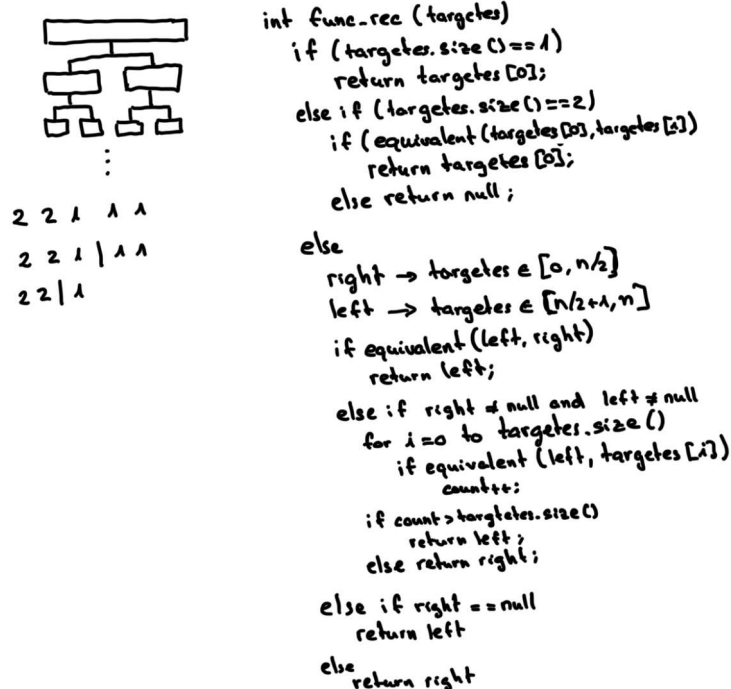 int func_rec (targetes)
if (targetes.size()==1)
return targetes[0];
else if (targetes.size()==2)
if (equivalent(targetes[0],targetes[1])
return targetes[0];
else return null;
2 2 1 1 1
2 2 1 | 1 1
2 2 | 1
else
right → targetes ∈ [0, n/2]
left → targetes ∈ [n/2+1, n]
if equivalent (left, right)
return left;
else if right ≠ null and left ≠ null
for i=0 to targetes.size()
if equivalent (left, targetes[i])
count++;
if count > targtetes.size()
return left;
else return right;
else if right == null
return left
else
return right